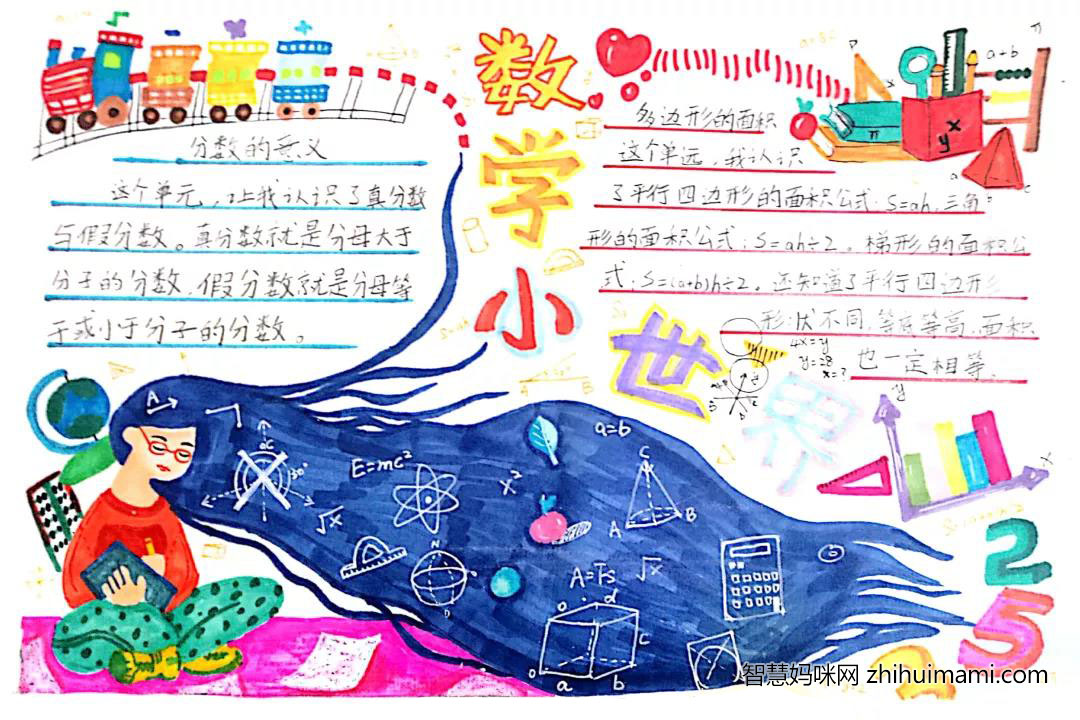 数学小世界
分数的意义
这个单元,让我认识了真分数
与假分数。真分数就是分母大于
分子的分数,假分数就是分母等
于或小于分子的分数。
多边形的面积
这个单远,我认识
了平行四边形的面积公式:S=ah,三角
形的面积公式:S=ah÷2。梯形的面积公
式:S=(a+b)h÷2。还知道了平行四边形
形状不同,等底等高,面积
也一定相等.
a+b
π
y x
a c
4x=y
y=28
x=?
A B
y
x
A
E=mc²
√x
x²
a=b
C
A B
A=Fs
√x
N
a d
c
a b
2
5
智慧妈咪网 zhihuimami.com